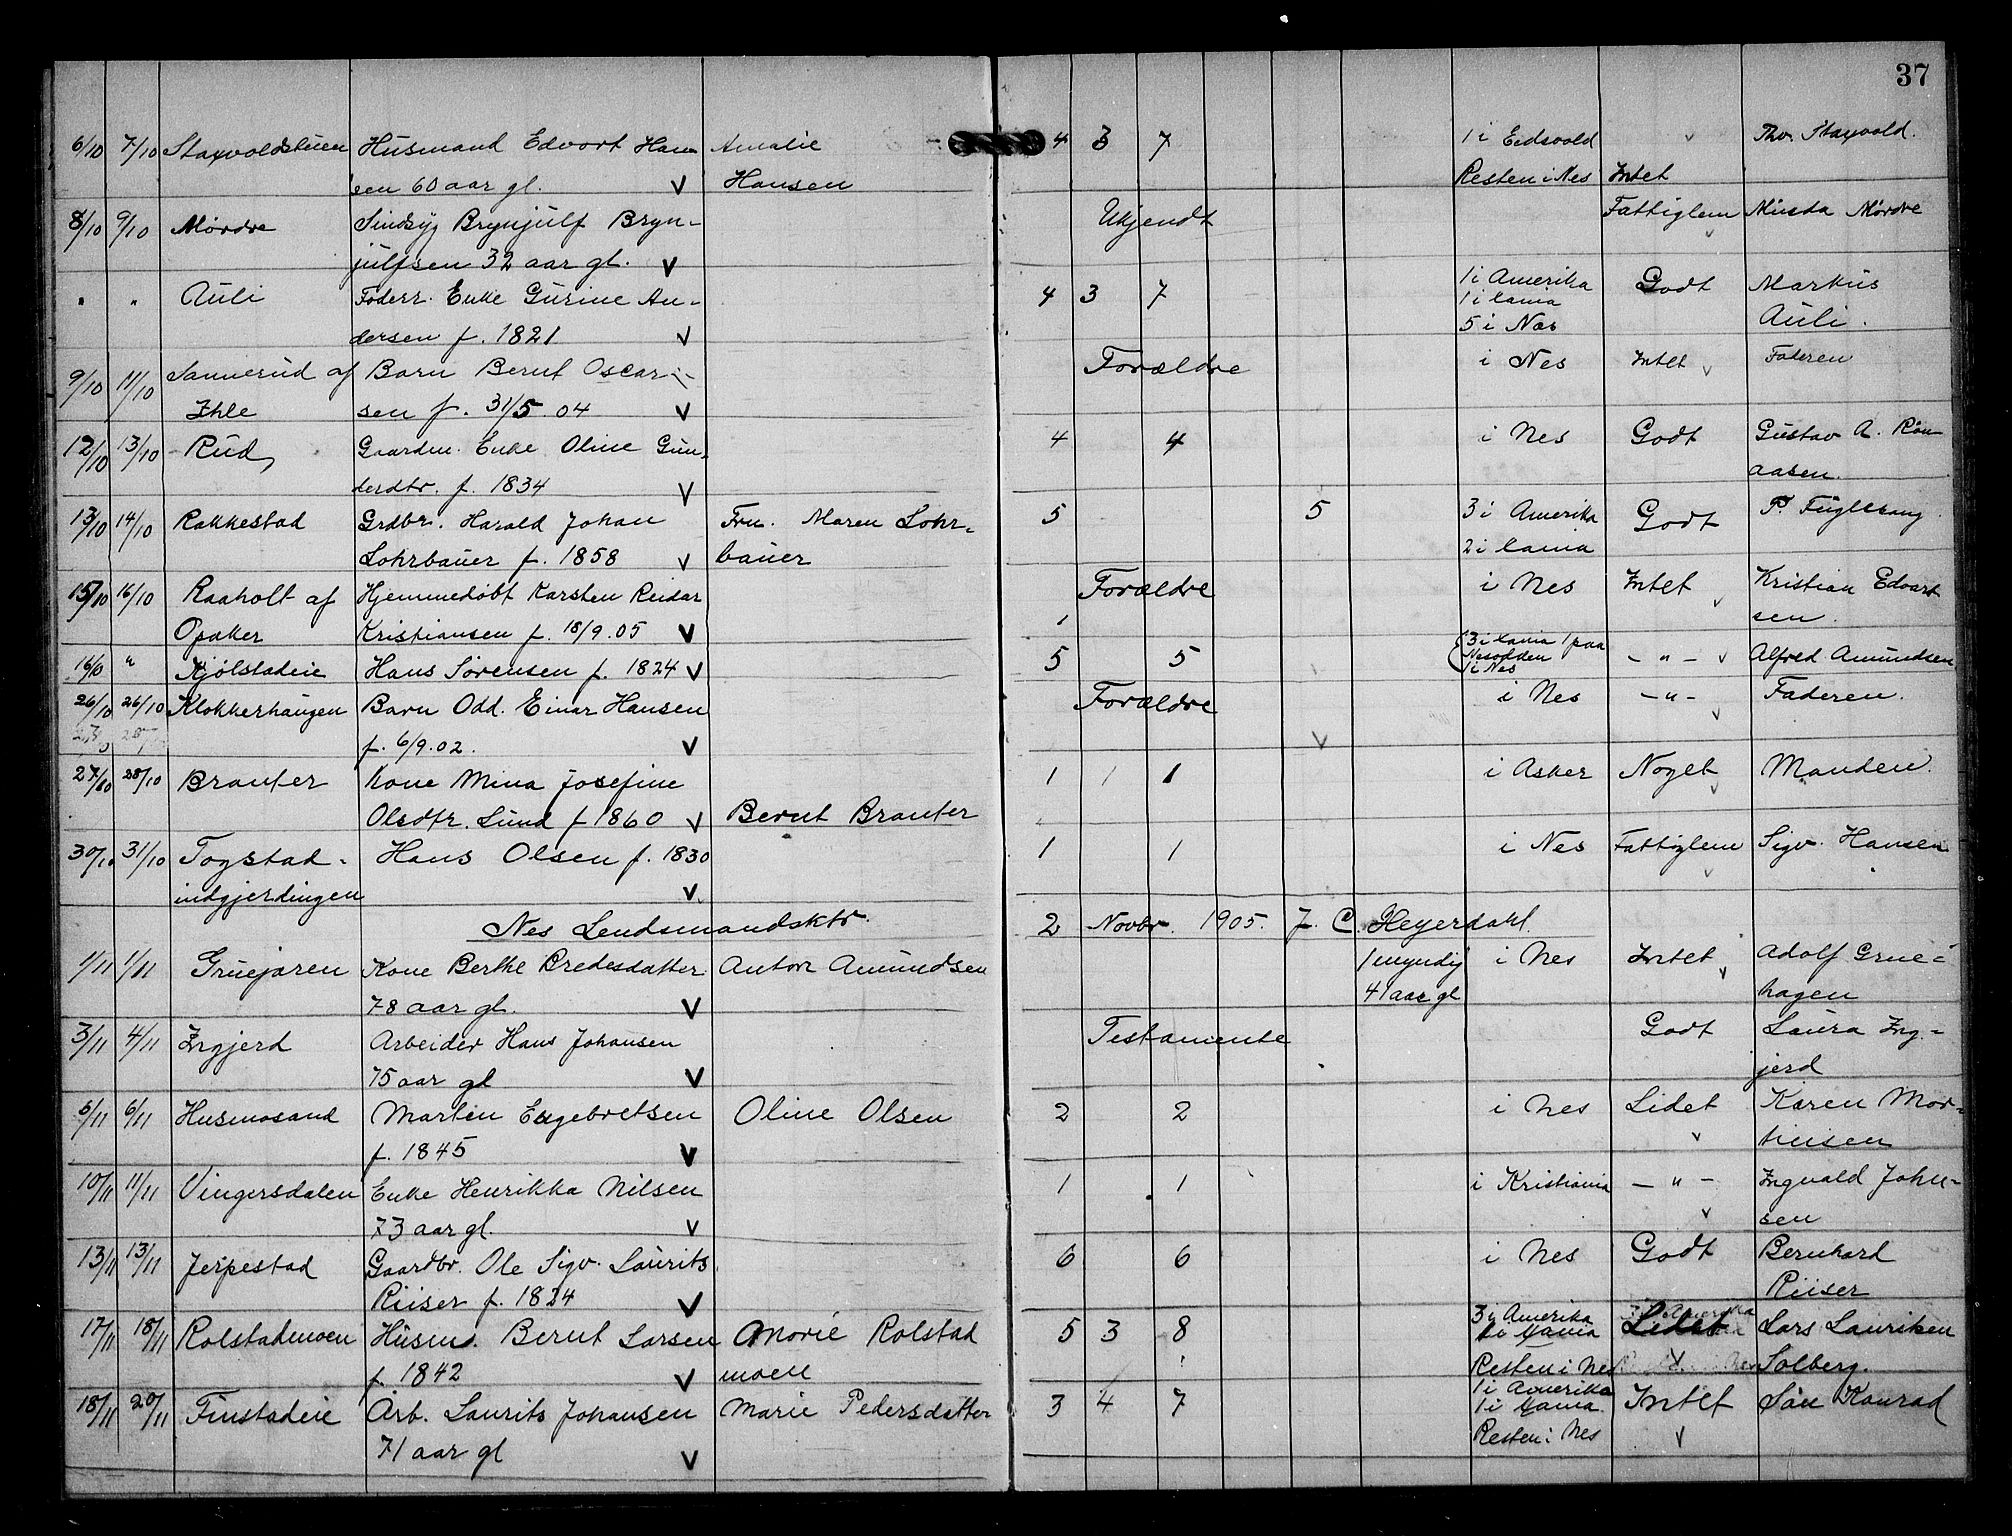 37
6/10 7/10 Staxvoldstuen Husmand Edvort Han Amalie 4 3 7 1 i Eidsvold Thv. Staxvold.
sen 60 aar gl. V Hansen Resten i Nes Intet
8/10 9/10 Mørdre Sindsyg Brynjulf Bryn- Ukjendt Fattiglem Minda Mørdre
julfsen 32 aar gl. V
" " Auli Føderr. Enke Gurine An- 4 3 7 1 i Amerika Godt Markus
1 i tania
dersen f. 1821 V 5 i Nes Auli.
9/10 11/10 Sannerud af Barn Bernt Oscar- Forældre i Nes Intet Faderen
Ihle sen f. 31/5 04 V
12/10 13/10 Rud Gaardm. Enke Oline Gun- 4 4 i Nes Godt Gustav A. Røn
derdtr. f. 1834 V aasen.
13/10 14/10 Rakkestad Grdbr. Harald Johan Fru. Maren Lohr- 5 5 3 i Amerika Godt P. Fuglesang
Lohrbauer f. 1858 V bauer 2 i tania
15/10 16/10 Raaholt af Hjemmedøbt Karsten Reidar Forældre i Nes Intet Kristian Edvart
Opaker Kristiansen f. 18/9.05 V sen.
16/10 " Kjølstadeie Hans Sørensen f. 1824 V 5 5 3 i tania 1 paa
Nesodden
1 i Nes - " - Alfred Amundsen
26/10 26/10 Klokkerhaugen Barn Odd. Einar Hansen Forældre i Nes - " - Faderen.
f. 6/9.02. V
27/10 28/10 Branter Kone Mina Josefine 1 1 1 i Asker Noget Manden.
Olsdtr. Lund f 1860 V Bernt Branter
30/10 31/10 Togstad- Hans Olsen f. 1830 1 1 i Nes Fattiglem Sigv. Hansen
indgjerdingen V
Nes Lendsmandsktr. 2 Novbr. 1905. J. C. Heyerdahl.
1/11 1/11 Gruejaren Kone Berthe Bredesdatter Anton Amundsen 1 myndig i Nes Intet Adolf Grue-
78 aar gl. V 41 aar gl hagen
3/11 4/11 Ingjerd Arbeider Hans Johansen Testamente Godt Laura Ing-
75 aar gl V jerd
5/11 6/11 Husmosand Martin Engebretsen Oline Olsen 2 2 i Nes Lidet Karen Mor-
f. 1845 V tinsen
10/11 11/11 Vingersdalen Enke Henrikka Nilsen 1 1 i Kristiania - " - Ingvald John-
73 aar gl. V sen
13/11 13/11 Jerpestad Gaardbr. Ole Sigv. Laurits 6 6 i Nes Godt Bernhard
Riiser f. 1824 V Riiser
17/11 18/11 Rolstadmoen Husm. Bernt Larsen Marie Rolstad 5 3 8 3 i Amerika Lidet Lars Lauritsen
1 i tania
f. 1842 V moen Resten i Nes Solberg.
18/11 20/11 Finstadeie Arb. Laurits Johansen Marie Pedersdatter 3 4 7 1 i Amerika Intet Søn Konrad
1 i tania
71 aar gl V Resten i Nes